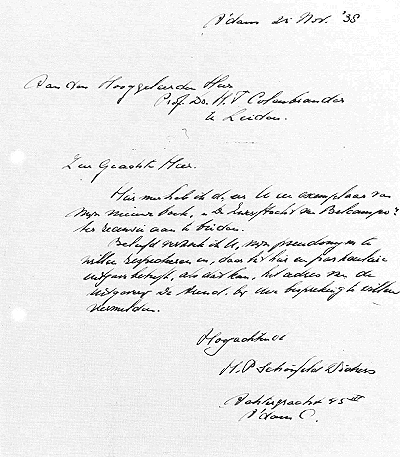 A'dam 21 Nov. '38
Aan den Hooggeleerden Heer
Prof. Dr. H.T Colenbrander
te Leiden.
Zeer Geachte Heer.
Hiermee heb ik de eer U een exemplaar van
mijn nieuwe boek, "De van Belcampo"
ter recensie aan te bieden.
Beleefd verzoek ik U, mijn pseudoniem te
willen respecteren en, daar het hier een particuliere
uitgave betreft, als dat kan, het adres van de
uitgeverij De Arend, bij Uw bespreking te willen
vermelden.
Hoogachtend
H.P Schönfeld Wichers
Achtergracht 45
A'dam C.